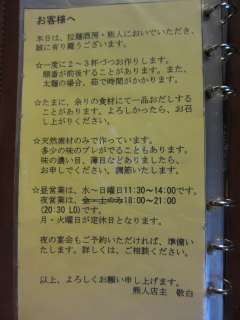 お客様へ
本日は、拉麺酒房・熊人においでいただき、
誠に有り難うございます。
☆一度に２～３杯づつお作りします。
順番が前後することがあります。また、
太麺の場合、茹で時間がかかります。
☆たまに、余りの食材にて一品おだしする
ことがあります。よろしかったら、お召
し上がりください。
☆天然素材のみで作っています。
多少の味のブレがでることもあります。
味の濃い目、薄目などありましたら、
お申しください。調節いたします。
☆昼営業は、水～日曜日11:30～14:00です。
夜営業は、金～土のみ18:00～21:00
(20:30 LO)です。
月・火曜日が定休日となります。
夜の宴会もご予約いただければ、準備い
たします。詳しくは、ご相談ください。
以上、よろしくお願い申し上げます。
熊人店主 敬白